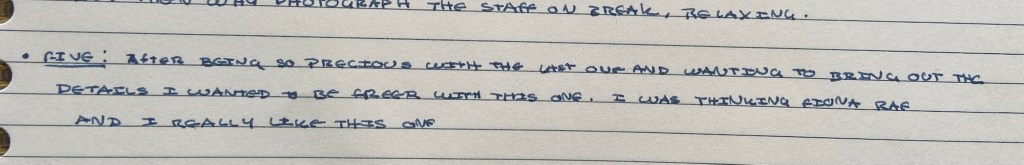 PHOTOGRAPH THE STAFF ON BREAK, RELAXING.
• FIVE: AFTER BEING SO PRECIOUS WITH THE LAST ONE AND WANTING TO BRING OUT THE
DETAILS I WANTED TO BE FREER WITH THIS ONE. I WAS THINKING FIONA RAE
AND I REALLY LIKE THIS ONE